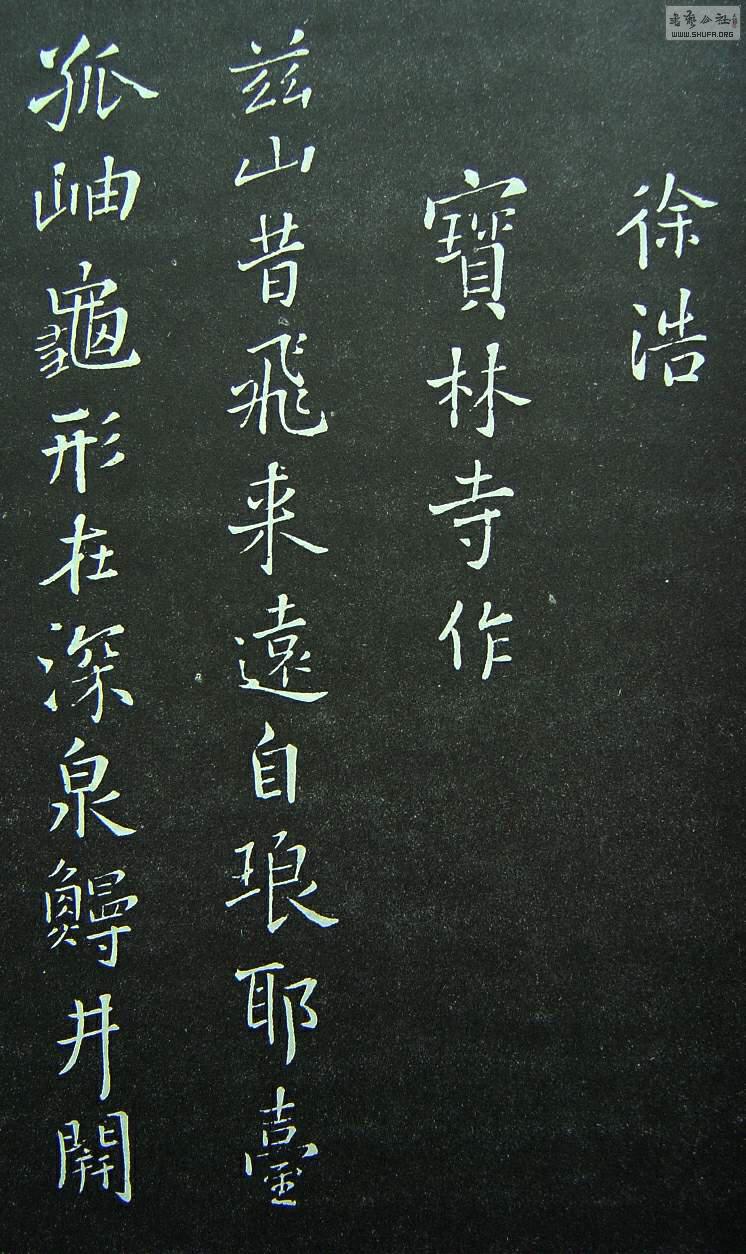 書藝公社
WWW.SHUFA.ORG
徐浩
寶林寺作
兹山昔飛来遠自琅耶臺
孤岫龜形在深泉鰻井開